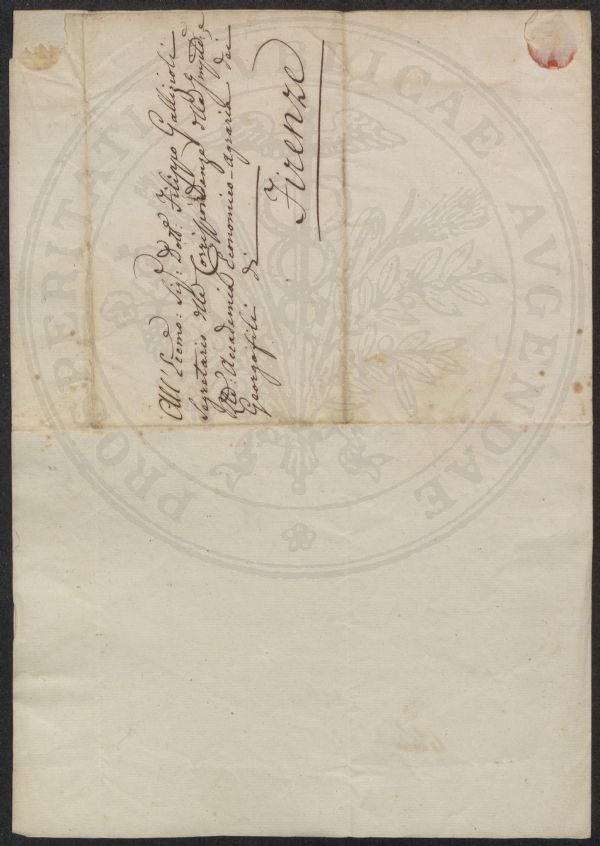 All' Eccmo: Sigr: Dott. Filippo Gallizioli
Segretario delle Corrispondenze della
Accademia Economico-Agraria dei
Georgofili di
Firenze
PROSPERITATI PUBLICAE AUGENDAE